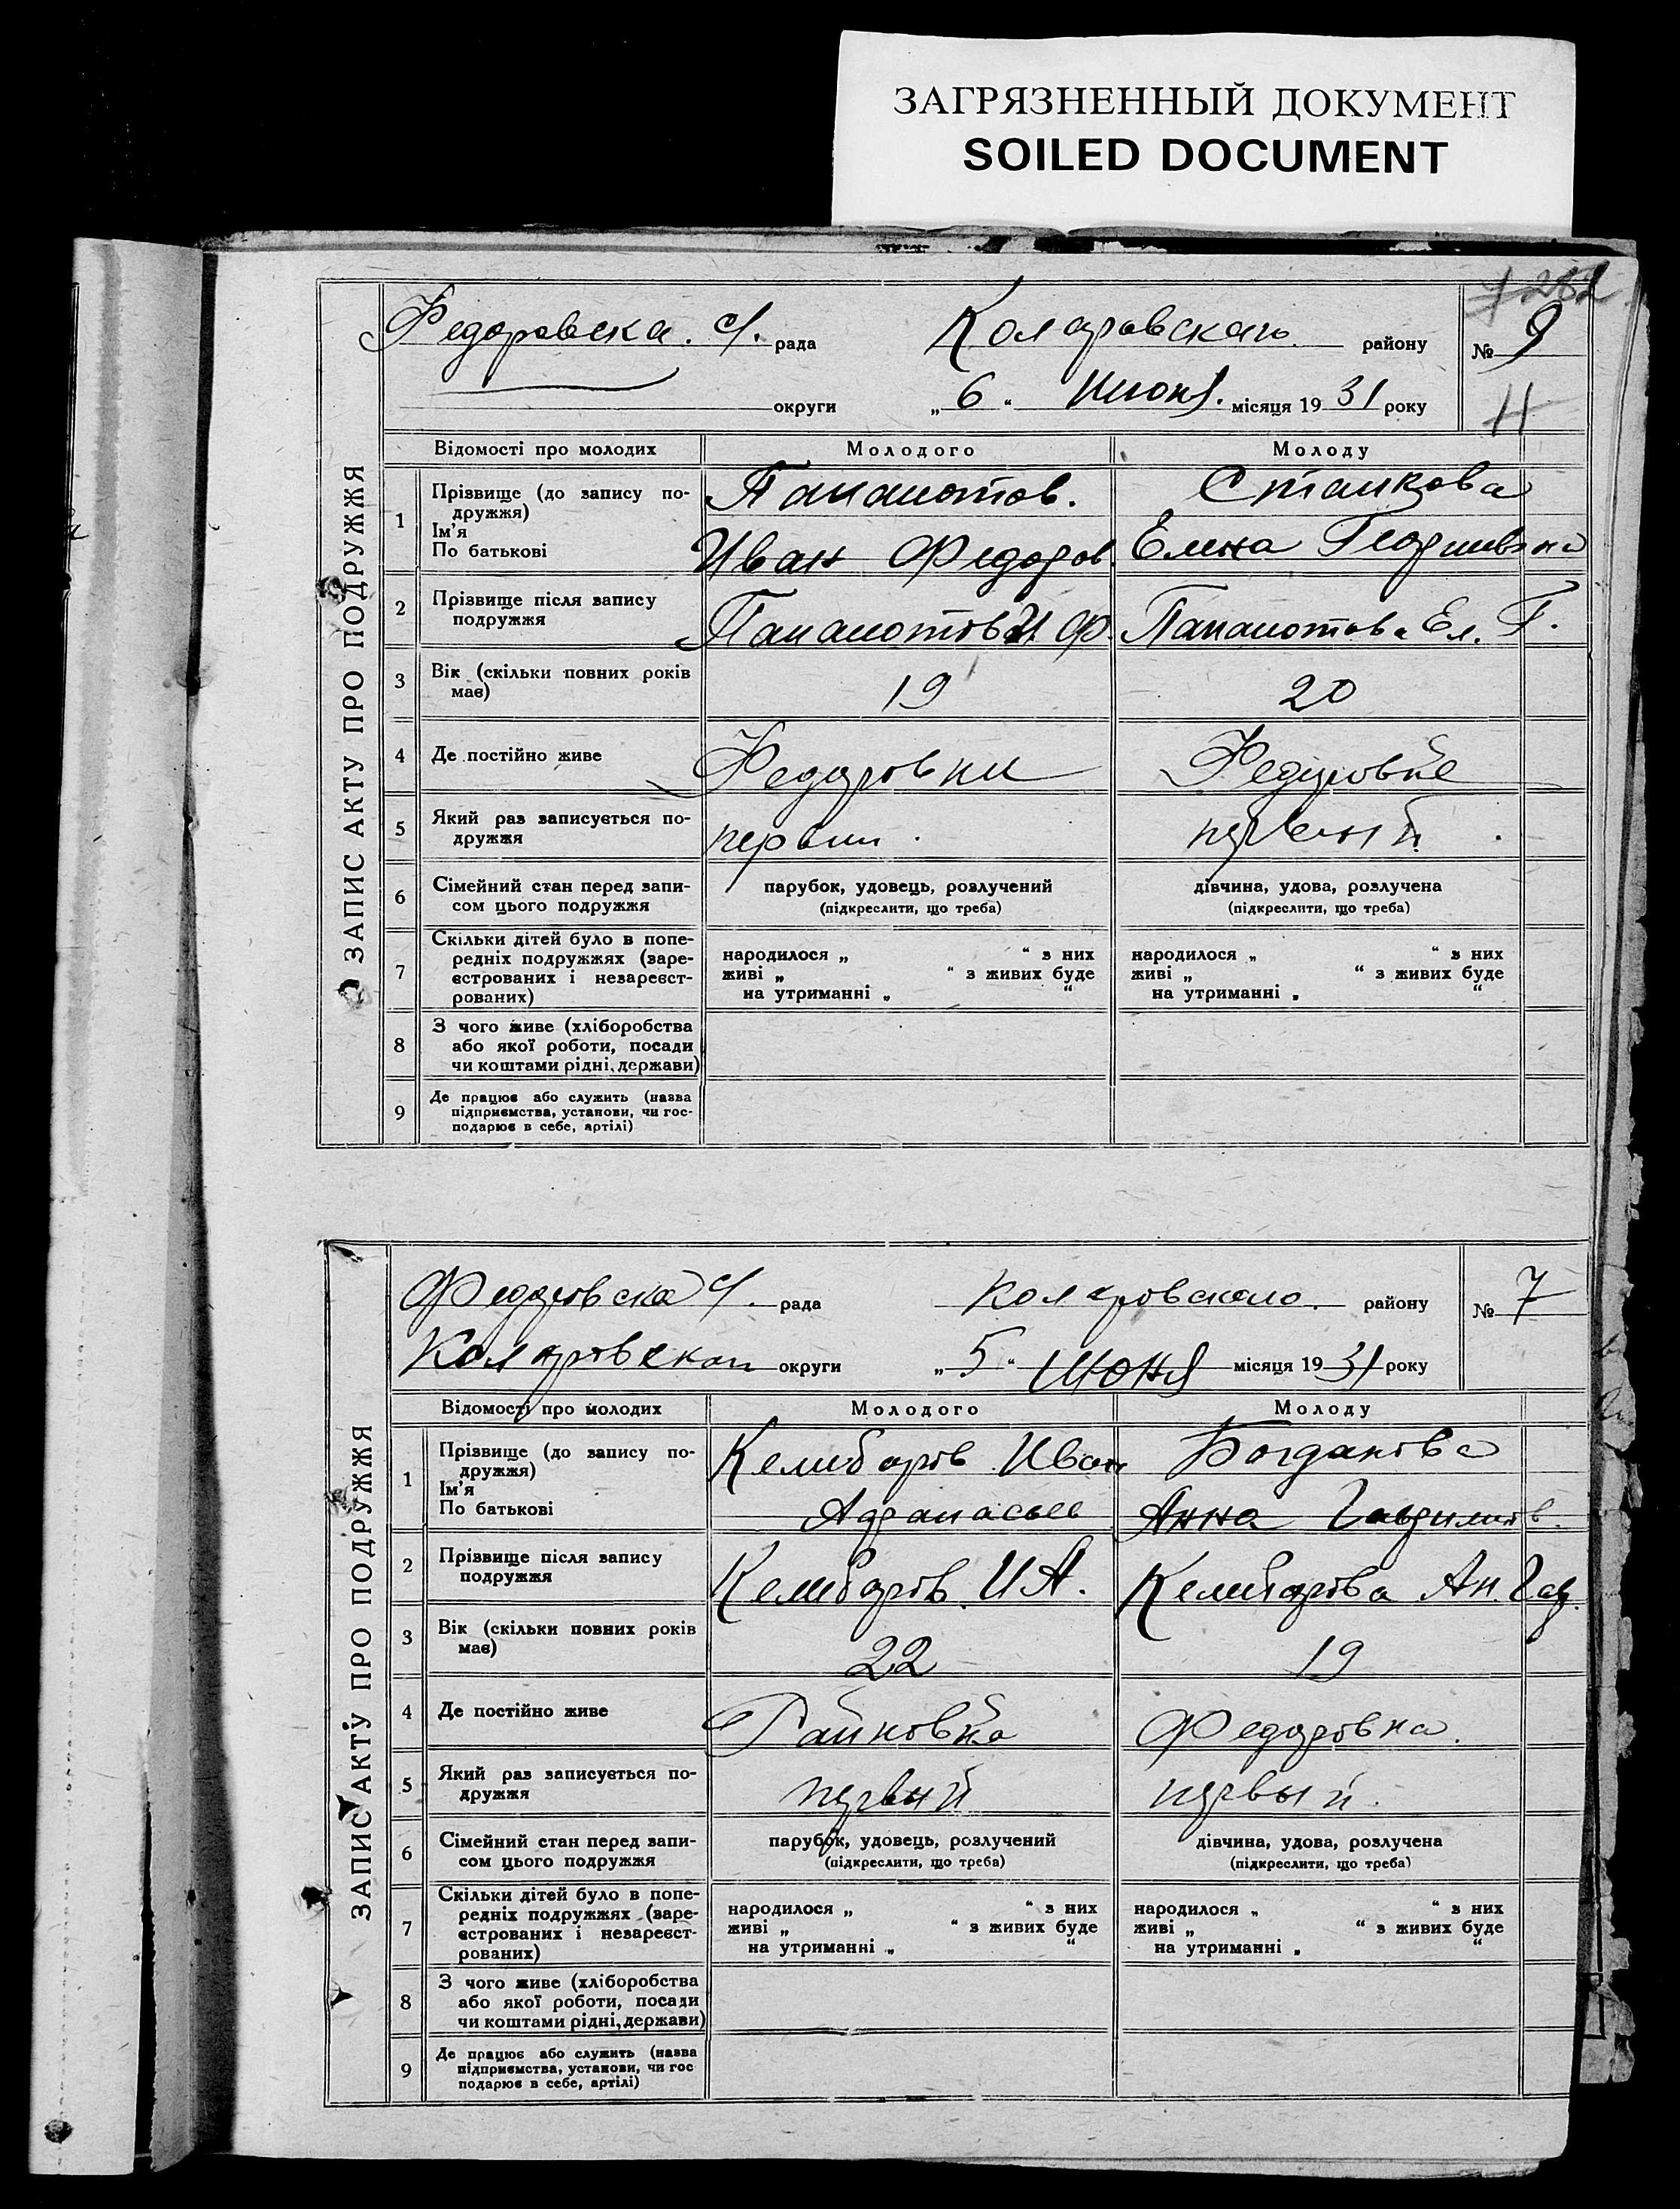 ЗАГРЯЗНЕННЫЙ ДОКУМЕНТ
SOILED DOCUMENT
ЗАПИС АКТУ ПРО ПОДРУЖЖЯ
Федоровска с/. рада Коларовскаго району № 9
округи „6“ Июня. місяця 1931 року
11
Відомості про молодих Молодого Молоду
1 Прізвище (до запису по-
дружжя)
Ім'я
По батькові
Папаиотов. Станкова
Иван Федоров. Елена Георгиевна
2 Прізвище після запису
подружжя
Папаиотов И Ф. Папаиотова Ел. Г.
3 Вік (скільки повних років
має)
19 20
4 Де постійно живе
Федоровки Федоровке
5 Який раз записується по-
дружжя
первии. первый.
6 Сімейний стан перед запи-
сом цього подружжя
парубок, удовець, розлучений
(підкреслити, що треба)
дівчина, удова, розлучена
(підкреслити, що треба)
7 Скільки дітей було в попе-
редніх подружжях (заре-
єстрованих і незареєст-
рованих)
народилося „ “ з них
живі „ “ з живих буде
на утриманні „ “
народилося „ “ з них
живі „ “ з живих буде
на утриманні „ “
8 З чого живе (хліборобства
або якої роботи, посади
чи коштами рідні, держави)
9 Де працює або служить (назва
підприємства, установи, чи гос-
подарює в себе, артілі)
ЗАПИС АКТУ ПРО ПОДРУЖЖЯ
Федоровска с/. рада Коларовского. району № 7
Коларовскои округи „5“ июня місяця 1931 року
Відомості про молодих Молодого Молоду
1 Прізвище (до запису по-
дружжя)
Ім'я
По батькові
Келибаров Иван Богданова
Афанасьев Анна Гаврилов.
2 Прізвище після запису
подружжя
Келибаров И А. Келибарова Ан. Гав.
3 Вік (скільки повних років
має)
22 19
4 Де постійно живе
Райновка Федоровка.
5 Який раз записується по-
дружжя
первый первый.
6 Сімейний стан перед запи-
сом цього подружжя
парубок, удовець, розлучений
(підкреслити, що треба)
дівчина, удова, розлучена
(підкреслити, що треба)
7 Скільки дітей було в попе-
редніх подружжях (заре-
єстрованих і незареєст-
рованих)
народилося „ “ з них
живі „ “ з живих буде
на утриманні „ “
народилося „ “ з них
живі „ “ з живих буде
на утриманні „ “
8 З чого живе (хліборобства
або якої роботи, посади
чи коштами рідні, держави)
9 Де працює або служить (назва
підприємства, установи, чи гос
подарює в себе, артілі)